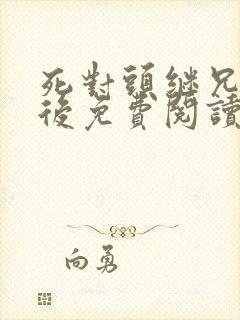 死對頭繼兄
後免費閱讀
向勇